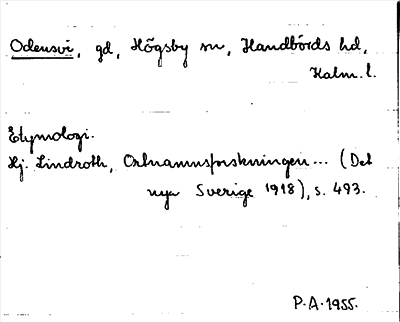 Odensvi, gd, Högsby sn, Handbörds hd,
Kalm. l.
Etymologi.
Hj. Lindroth, Ortnamnsforskningen... (Det
nya Sverige 1918), s. 493.
P. A. 1955.